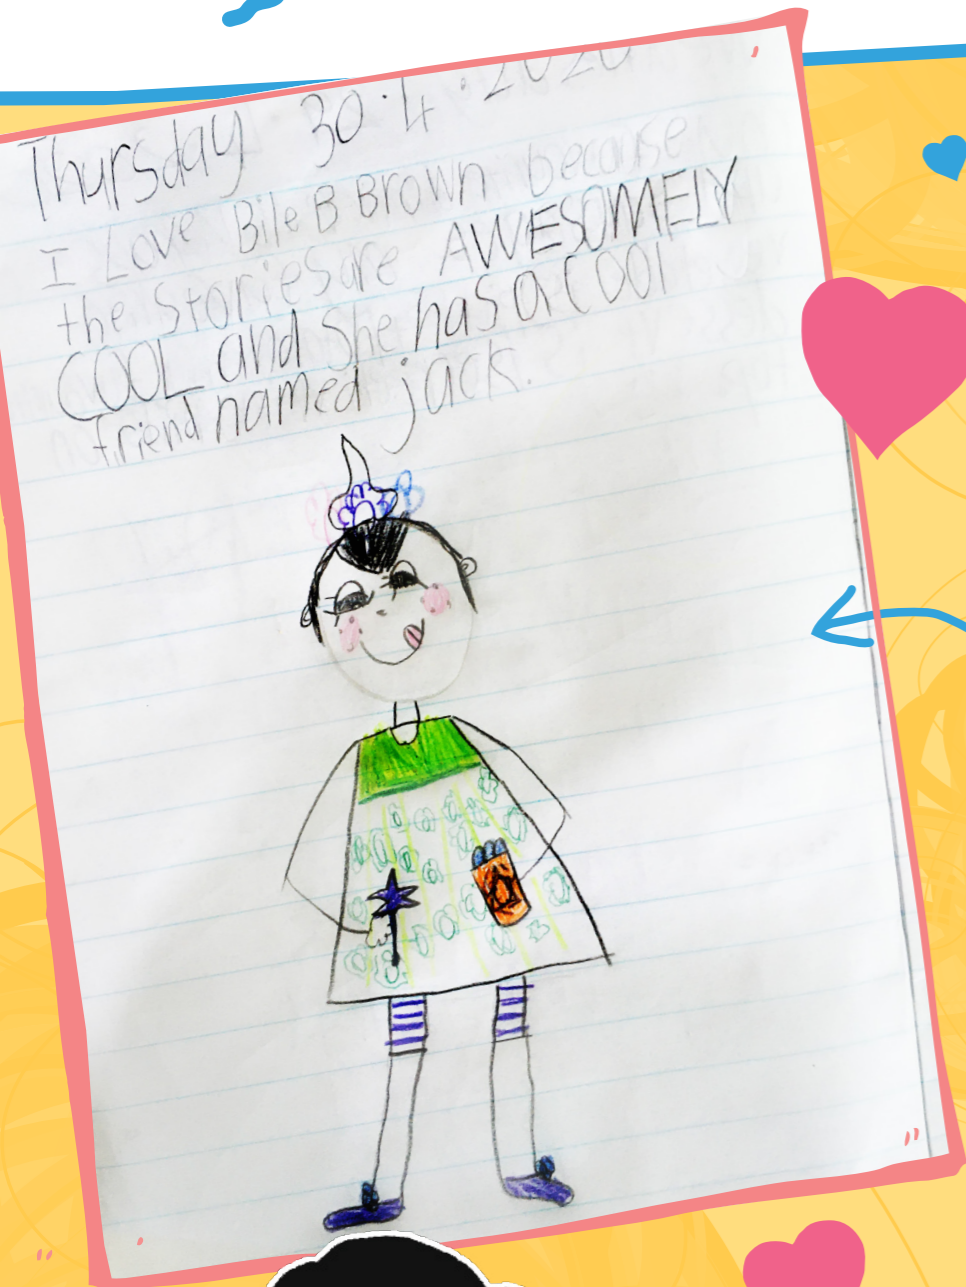 Thursday 30.4.2020
I Love Bile B Brown because
the Stories are AWESOMELY
COOL and She has a Cool
friend named jack.